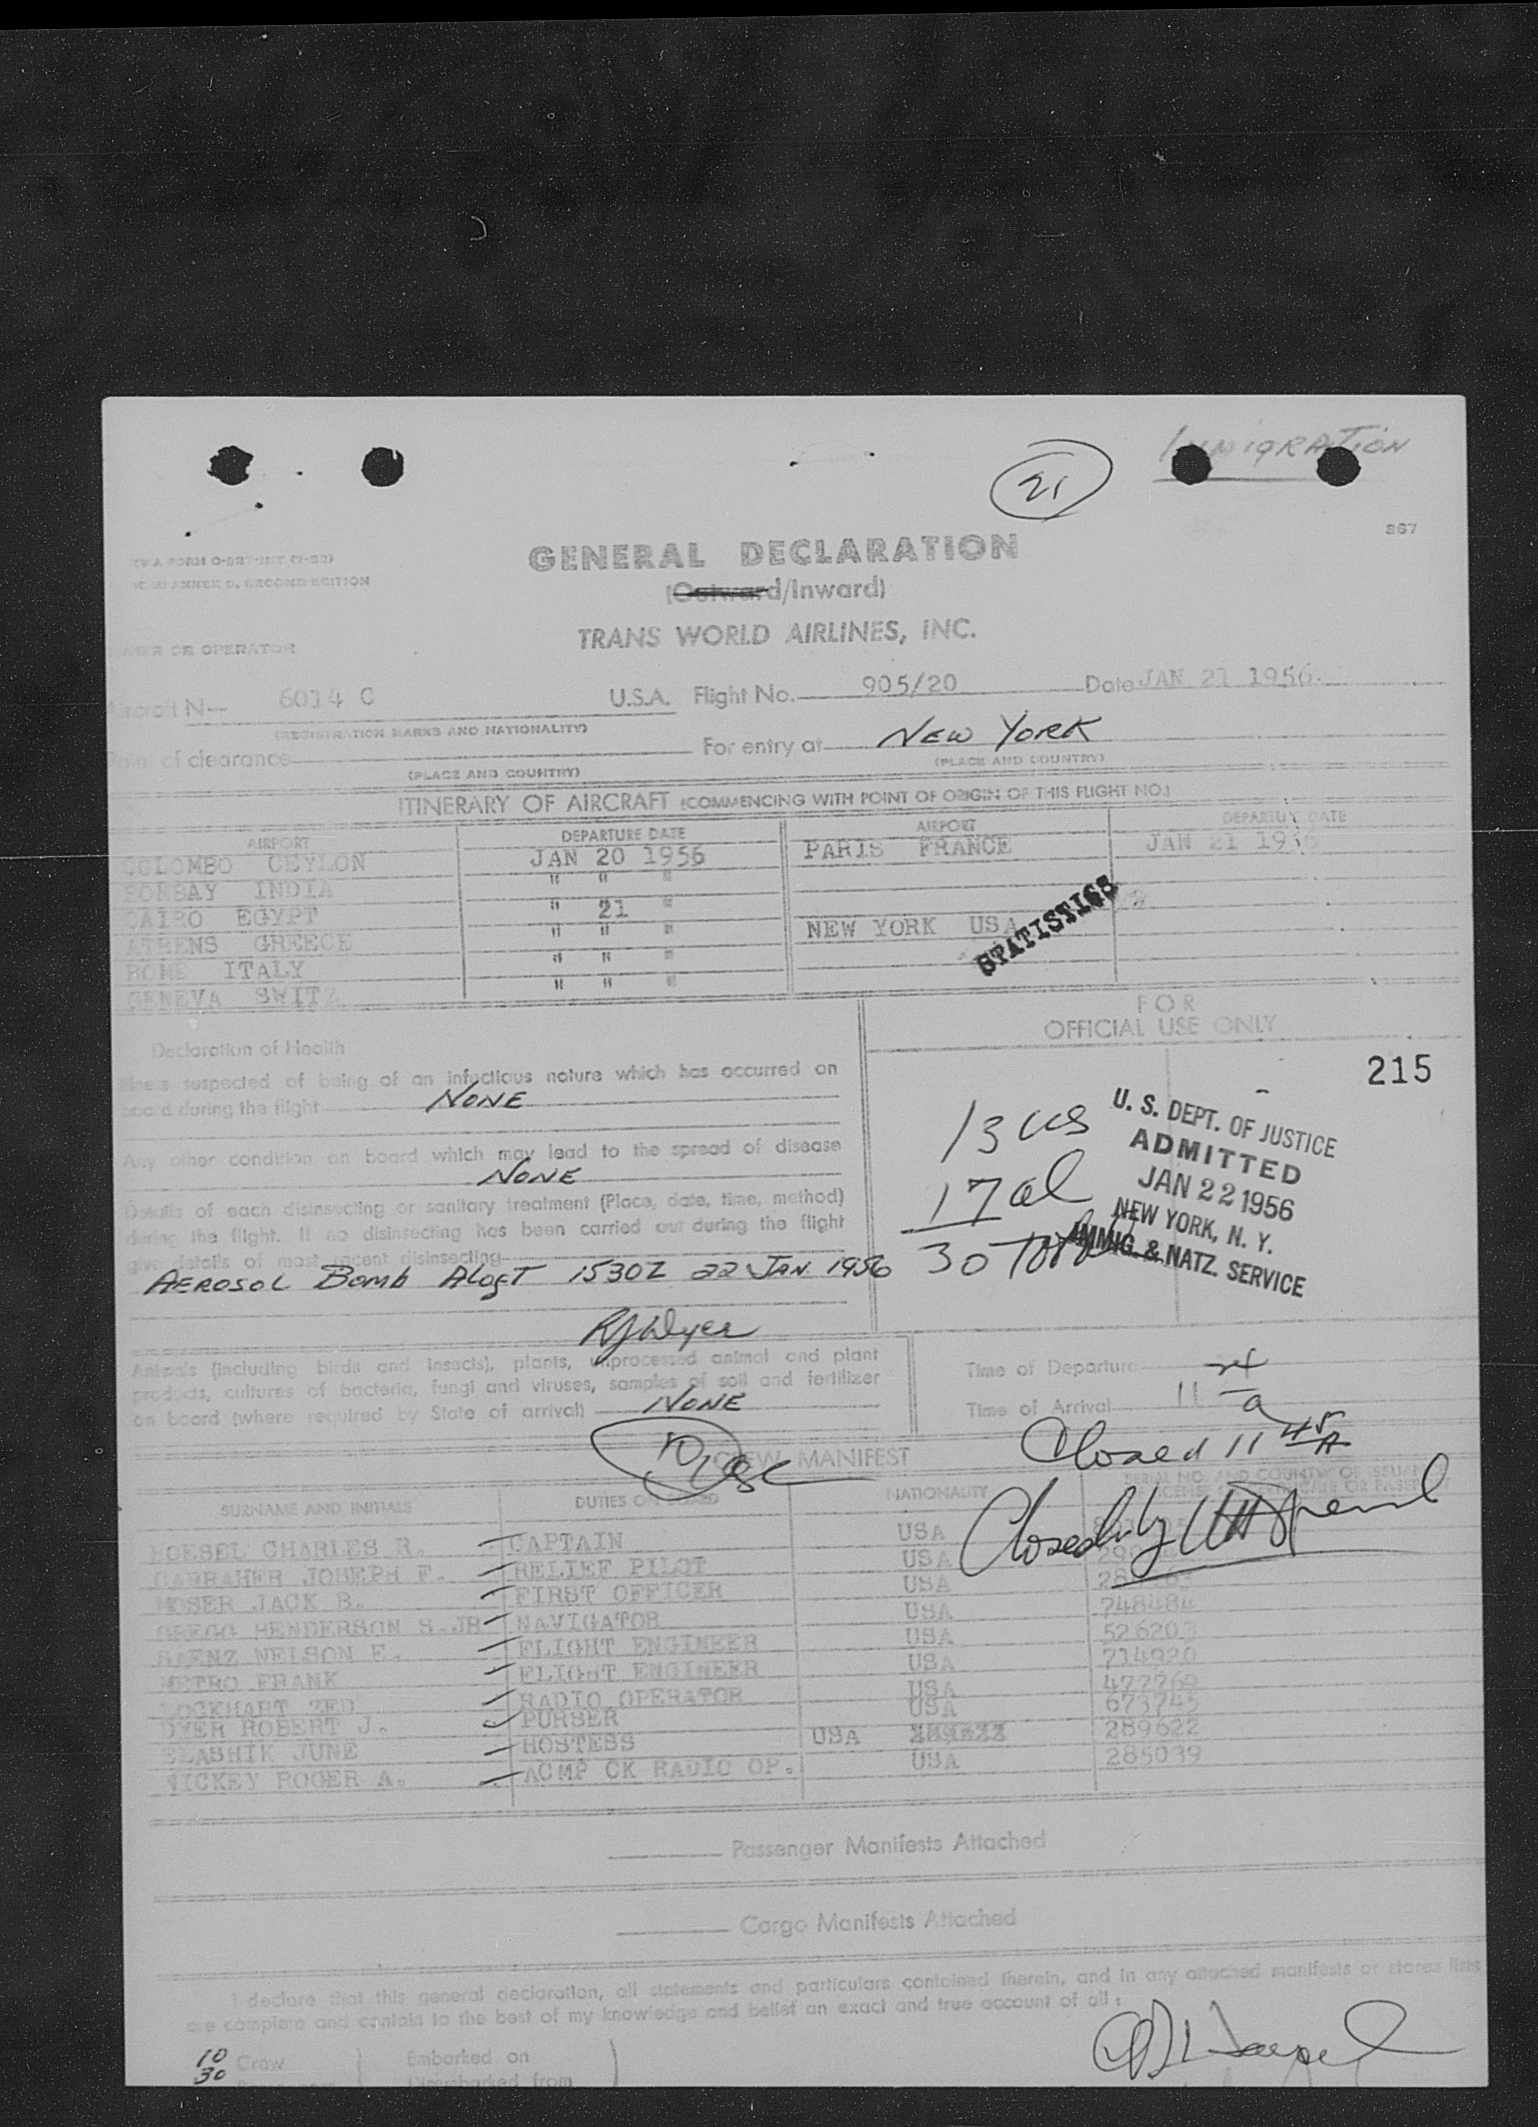 IMMIGRATION
21
867
GENERAL DECLARATION
(Outward/Inward)
TRANS WORLD AIRLINES, INC.
OR OPERATOR
Aircraft N— 6014 C U.S.A. Flight No. 905/20 Date JAN 21 1956
(REGISTRATION MARKS AND NATIONALITY)
Point of clearance For entry at NEW YORK
(PLACE AND COUNTRY) (PLACE AND COUNTRY)
ITINERARY OF AIRCRAFT (COMMENCING WITH POINT OF ORIGIN OF THIS FLIGHT NO.)
AIRPORT DEPARTURE DATE AIRPORT DEPARTURE DATE
COLOMBO CEYLON JAN 20 1956 PARIS FRANCE JAN 21 1956
BOMBAY INDIA " " "
CAIRO EGYPT " 21 "
ATHENS GREECE " " " NEW YORK USA
ROME ITALY " " "
GENEVA SWITZ " " "
STATISTICS
FOR
OFFICIAL USE ONLY
Declaration of Health
Illness suspected of being of an infectious nature which has occurred on
board during the flight NONE
Any other condition on board which may lead to the spread of disease
NONE
Details of each disinsecting or sanitary treatment (Place, date, time, method)
during the flight. If no disinsecting has been carried out during the flight
give details of most recent disinsecting
AEROSOL BOMB ALOFT 1530Z 22 JAN 1956
RJ Dyer
215
13 us
17 al
30 Total
U. S. DEPT. OF JUSTICE
ADMITTED
JAN 22 1956
NEW YORK, N. Y.
IMMIG. & NATZ. SERVICE
Animals (including birds and insects), plants, unprocessed animal and plant
products, cultures of bacteria, fungi and viruses, samples of soil and fertilizer
on board (where required by State of arrival) NONE
Time of Departure
Time of Arrival 11 24 a
Closed 11 45 A
Closed by
10 usc
CREW MANIFEST
SURNAME AND INITIALS DUTIES ON BOARD NATIONALITY
HOESEL CHARLES R. CAPTAIN USA
CARRAHER JOSEPH F. RELIEF PILOT USA
MOSER JACK B. FIRST OFFICER USA
GREGG HENDERSON S.JR NAVIGATOR USA 748484
SAENZ NELSON E. FLIGHT ENGINEER USA 526203
METRO FRANK FLIGHT ENGINEER USA 714920
LOCKHART ZED RADIO OPERATOR USA 477769
DYER ROBERT J. PURSER USA 673745
SLASHIK JUNE HOSTESS USA 289622
HICKEY ROGER A. ACMP CK RADIO OP. USA 285039
Passenger Manifests Attached
Cargo Manifests Attached
I declare that this general declaration, all statements and particulars contained therein, and in any attached manifests or stores lists
are complete and contain to the best of my knowledge and belief an exact and true account of all:
10 Crew Embarked on
30 Disembarked from